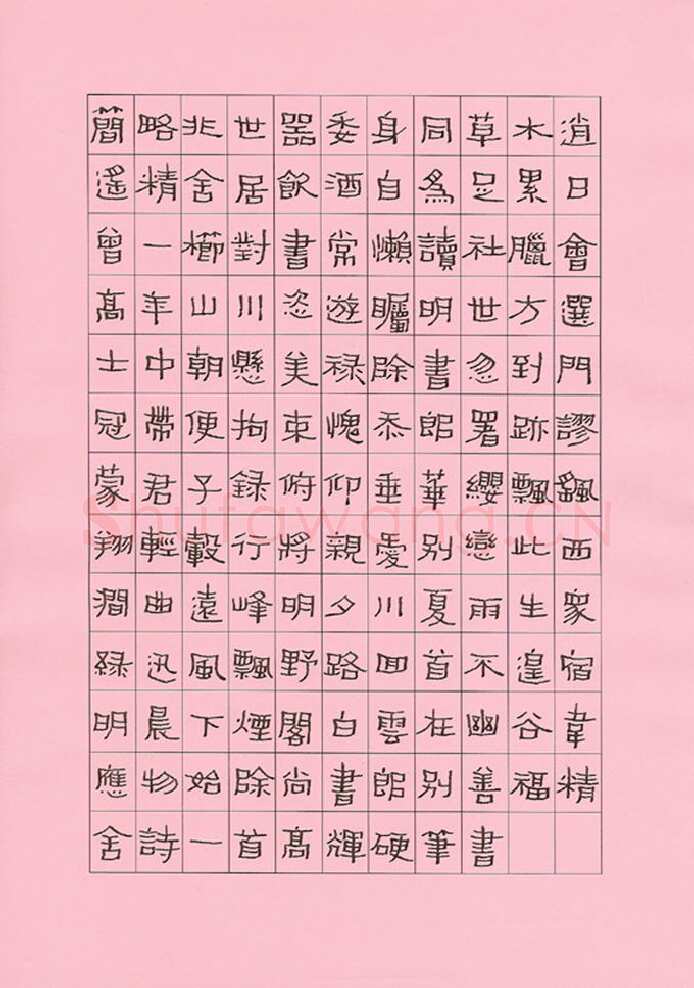 簡略非世器委身同草木逍
遙精舍居飲酒自為足累日
曾一櫛對書常懶讀社臘會
髙年山川恣遊矚明世方選
士中朝懸美禄除書忽到門
冠帶便拘束愧忝郎署跡謬
蒙君子録俯仰垂華纓飄颻
翔輕轂行將親愛別戀此西
澗曲遠峰明夕川夏雨生衆
緑迅風飄野路囬首不遑宿
明晨下煙閣白雲在幽谷韋
應物始除尚書郎別善福精
舍詩一首髙輝硬筆書
Shufawang.CN